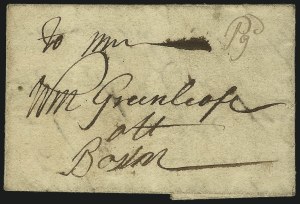 To mr
Wm Greenleafe
att
Boston